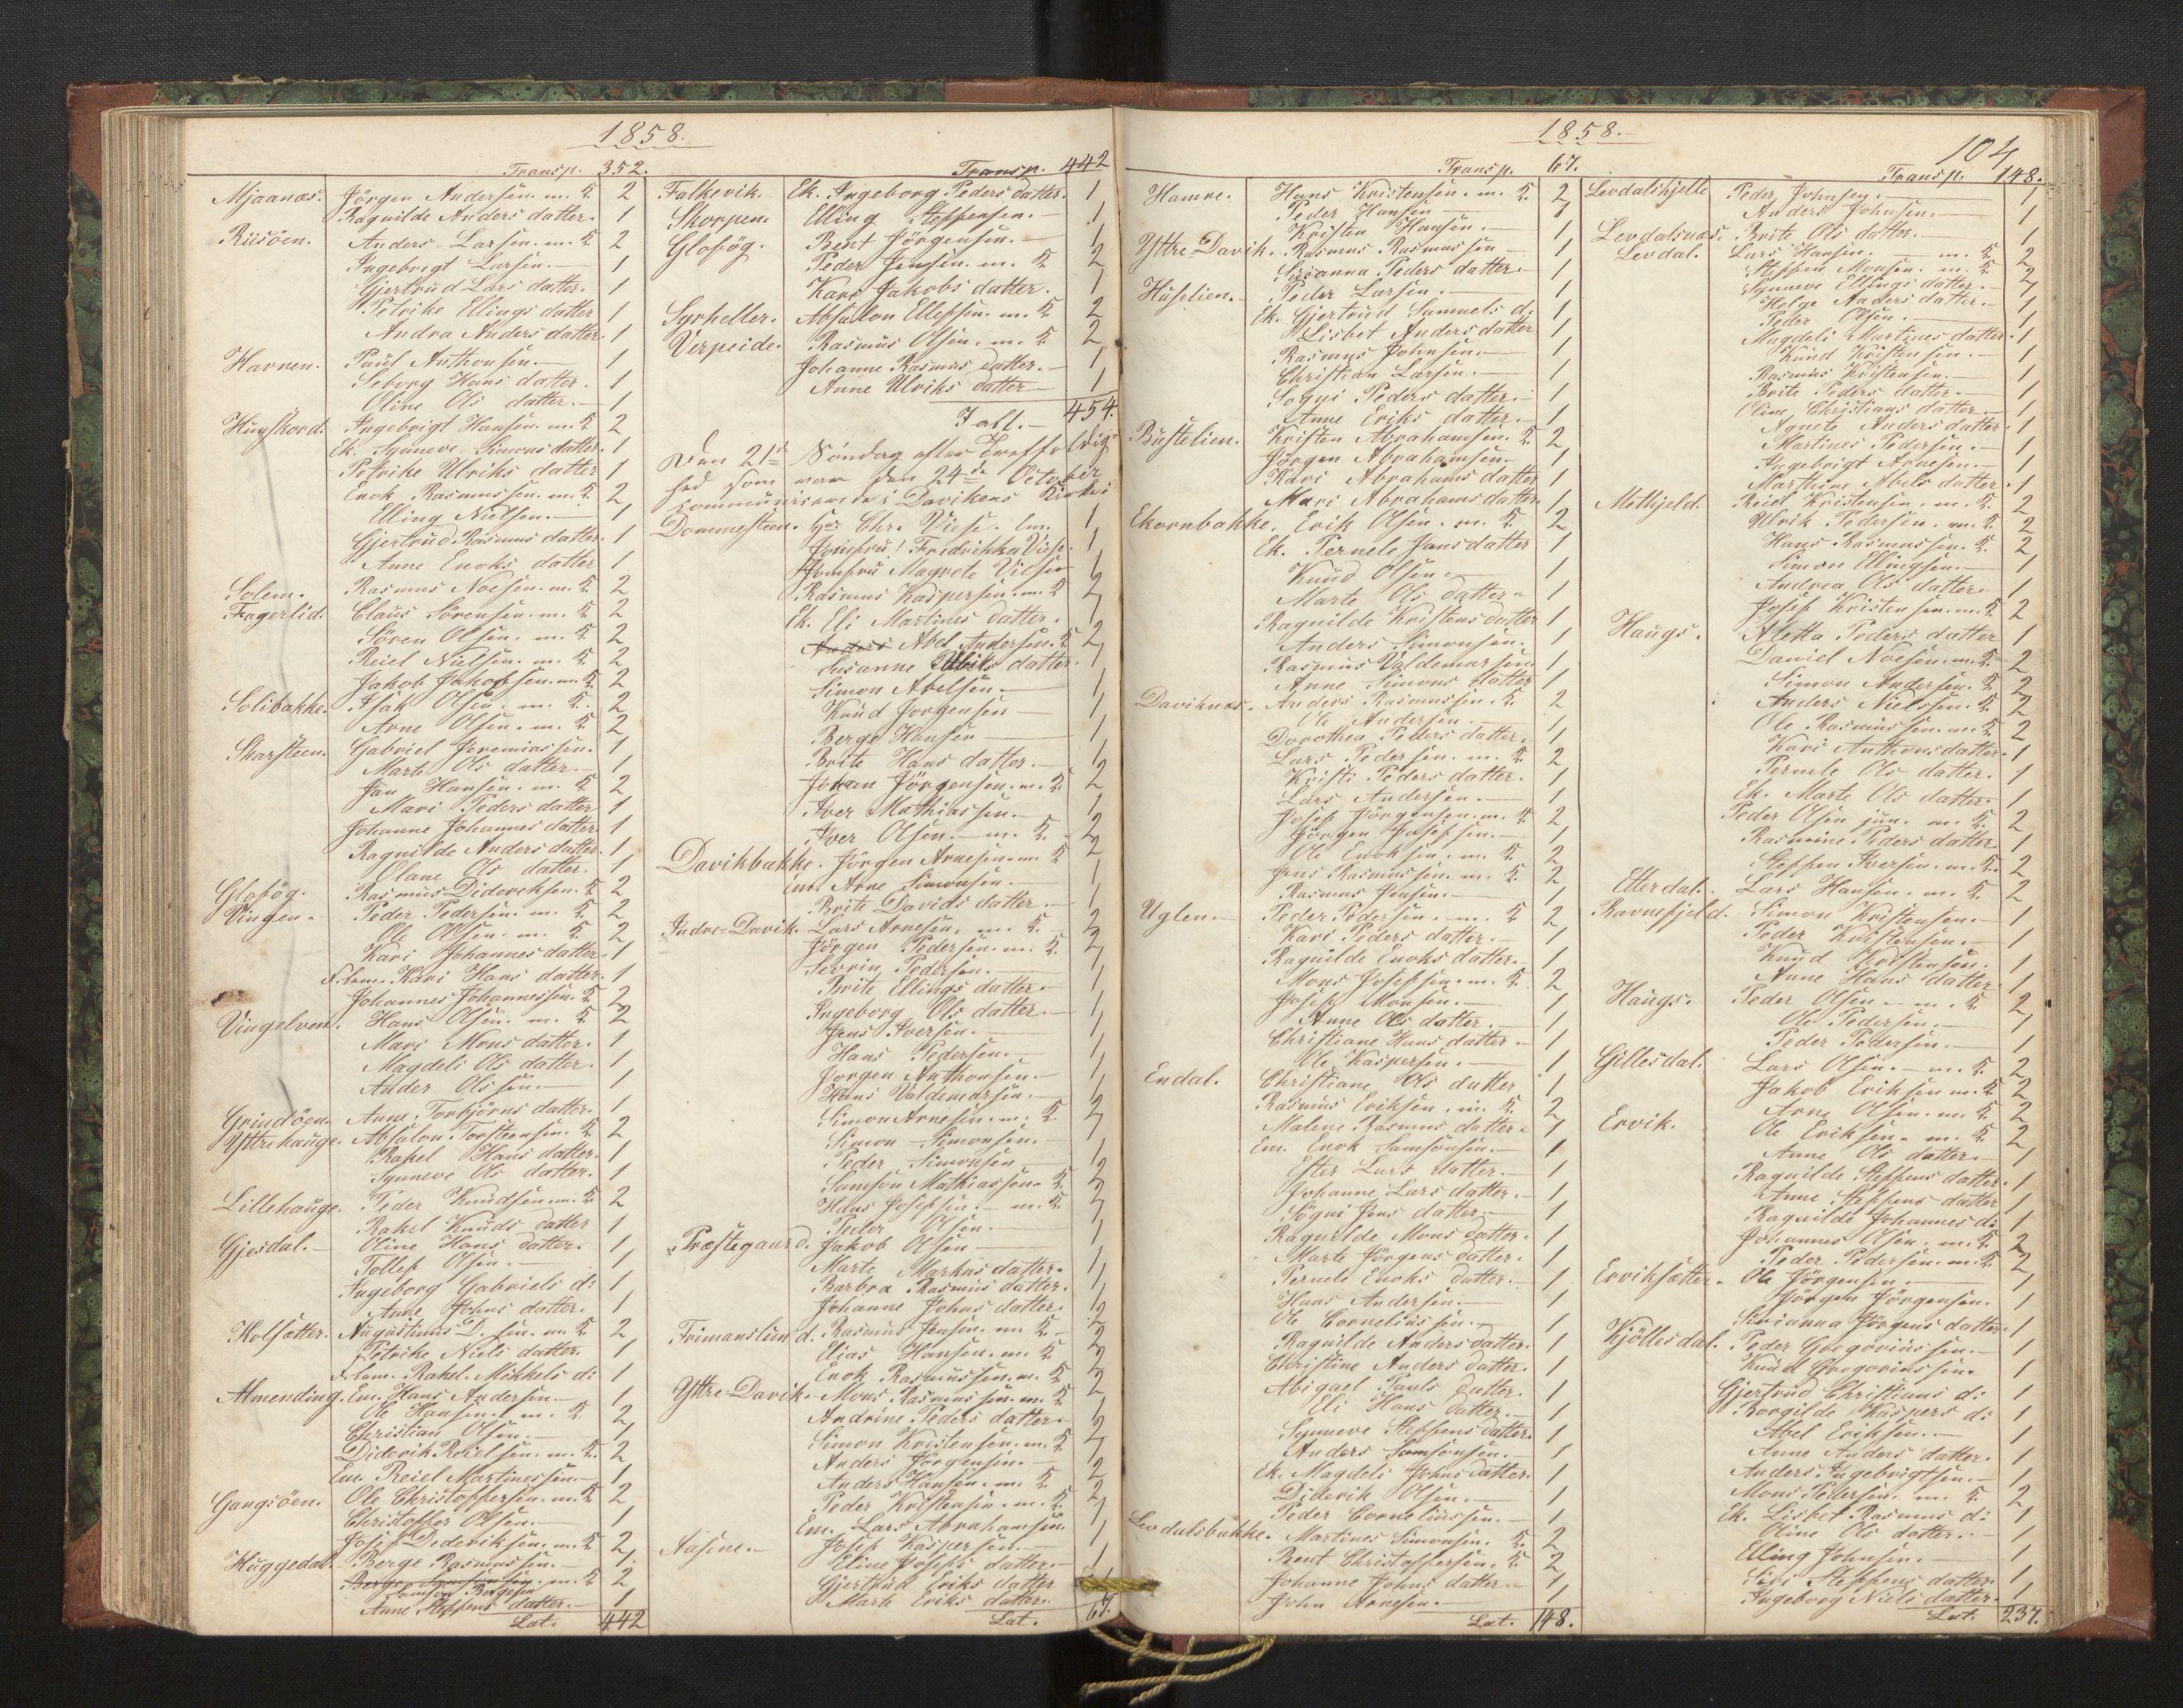 1858.
Transp. 352.
Mjaanæs. Jörgen Andersen. m. K. 2
Ragnilde Anders datter. 1
Riisöen. Anders Larsen. m. K 2
Ingebrigt Larsen. 1
Gjertrud Lars datter. 1
Petrike Ellings datter 1
Andra Anders datter. 1
Havnen. Paul Anthonsen. 1
Seborg Hans datter. 1
Oline Ols datter. 1
Hunskord. Ingebrigt Hansen. m. K 2
Ek. Synneve Simons datter. 1
Petrike Ulriks datter 1
Enok Rasmussen. m. K. 2
Elling Nielsen. 1
Gjertrud Rasmus datter. 1
Anne Enoks datter 1
Solem. Rasmus Noesen. m. K 2
Fagerlid. Claus Sörensen. m. K 2
Sören Olsen. m. K 2
Reiel Nielsen. m. K 2
Jakob Jakobsen. m. K. 2
Solibakke. Isak Olsen. m. K. 2
Arne Olsen. m. K 2
Skarsteen. Gabriel Jeremiassen. 1
Marte Ols datter. 1
Jan Hansen. m. K 2
Mari Peders datter 1
Johanne Johannes datter. 1
Ragnilde Anders datter. 1
Olane Ols datter. 1
Glosög. Rasmus Dideriksen. K 2
Vingen. Peder Pedersen. m. K 2
Ole Olsen. m. K 2
Kari Johannes datter 1
F.lem. Kari Hans datter. 1
Johannes Johannessen. K 2
Vingelven. Hans Olsen. m. K 2
Mari Mons datter. 1
Magdeli Ols datter. 1
Ander Olssen. 1
Grindöen. Anne Torbjörns datter. 1
Yttrehauge. Absalon Torsteensen. K 2
Rakel Hans datter. 1
Synneve Ols datter. 1
Lillehauge. Peder Knudsen m. K 2
Rakel Knuds datter 1
Gjesdal. Oline Hans datter. 1
Tollef Olsen. 1
Ingeborg Gabriels d: 1
Anne Johns datter. 1
Kolsætter. Augustinus D. sen. m. K 2
Petrike Niels datter. 1
F.lem. Rakel Mikkels d: 1
Almending. Em. Hans Andersen. 1
Ole Hansen. m. K. 2
Christian Olsen. 1
Diderik Reielsen. m. K. 2
Em. Reiel Martinessen. 1
Gangsöen. Ole Christoffersen. m. K 2
Christoffer Olsen. 1
Josef Dideriksen. m. K 2
Huggedal. Berge Rasmussen. 1
m. K 2
Samson Bergesen
Anne Steffens datter. 1
Lat. 442
Transp. 442
Falkevik. Ek. Ingeborg Peders datter. 1
Skorpen. Elling Steffensen. 1
Glosög. Bent Jörgensen. 1
Peder Jensen. m. K 2
Kari Jakobs datter. 1
Syrheller. Absalon Ellefsen. m. K 2
Verpeide. Rasmus Olsen. m. K 2
Johanne Rasmus datter. 1
Anne Ulriks datter 1
Tall. 454.
Den 21de Söndag efter Treffoldig-
hed som var den 24de October
communiserende i Davikens Kirke
Dommesteen. Hr. Chr. Viese. Em. 1
Jomfru Fredrikka Viese. 1
Jomfru Magrete Viese 1
Rasmus Kaspersen. m. K 2
Ek. Eli Martines datter. 1
Anders Abel Andersen. K 2
Susanne Ulriks datter. 1
Simon Abelsen. 1
Knud Jorgensen 1
Berge Hansen 1
Brite Hans datter. 1
Johan Jörgensen. m. K 2
Iver Mathiassen. 1
Iver Olsen. m. K. 2
Davikbakke. Jörgen Arnesen m K 2
Em. Arne Simonsen. 1
Brite Davids datter. 1
Indre-Davik. Lars Arnesen. m. K. 2
Jörgen Pedersen. m. K. 2
Sevrin Pedersen. 1
Brite Ellings datter. 1
Ingeborg Ols datter. 1
Jens Iversen. 1
Hans Pedersen. 1
Jorgen Anthonsen. 1
Hans Valdemarsen. 1
Simon Arnesen. m. K. 2
Simon Simonsen. 1
Peder Simonsen 1
Samson Mathiassen. K 2
Hans Josefsen. m. K. 2
Peder Olsen. 1
Præstegaard. Jakob Olsen 1
Marte Markus datter. 1
Barbra Rasmus datter. 1
Johanne Johns datter. 1
Frimanslund. Rasmus Jensen. m. K 2
Elias Hansen. m. K 2
Enok Rasmussen. m. K 2
Yttre-Davik. Mons Rasmussen. m. K 2
Andrine Peders datter. 1
Simon Kristensen. m. K 2
Anders Jörgensen. 1
Anders Hansen. m. K 2
Peder Kristensen. m. K. 2
Em. Lars Abrahamsen. 1
Aasene. Josef Kaspersen. 1
Eline Josefs datter. 1
Gjertrud Eriks datter 1
Marte Eriks datter.
Lat. 67.
1858.
Transp. 67.
Hamre. Hans Kristensen. m. K. 2
Peder Hansen 1
Kristen Hansen. 1
Yttre Davik. Rasmus Rasmussen 1
Susanna Peders datter. 1
Huselien. Peder Larsen. 1
Ek. Gjertrud Samuels d. 1
Lisbet Anders datter 1
Rasmus Johnsen. 1
Christian Larsen. 1
Sogni Peders datter. 1
Anne Eriks datter. 1
Bustelien. Kristen Abrahamsen. K. 2
Jörgen Abrahamsen. 1
Kari Abrahams datter 1
Mari Abrahams datter. 1
Ekornbakke. Erik Olsen. m. K. 2
Ek. Pernele Jansdatter 1
Knud Olsen. 1
Marte Ols datter. 1
Ragnilde Kristens datter 1
Anders Simonsen. 1
Rasmus Valdemarsen. 1
Anne Simons datter 1
Daviknæs. Anders Rasmussen. K. 2
Ole Andersen. 1
Dorothea Peders datter. 1
Lars Pedersen. m. K 2
Kristi Peders datter. 1
Lars Andersen. 1
Josef Jörgensen. m. K 2
Jörgen Josefsen. 1
Ole Enoksen. m. K. 2
Jens Rasmussen. m. K. 2
Rasmus Jensen. 1
Uglen. Peder Pedersen. m. K 2
Kari Peders datter. 1
Ragnilde Enoks datter. 1
Mons Josefsen. m. K. 2
Josef Monsen. 1
Anne Ols datter. 1
Christiane Hans datter. 1
Ole Kaspersen. 1
Endal. Christiane Ols datter 1
Rasmus Eriksen. m. K. 2
Malene Rasmus datter. 1
Em. Enok Samsonsen. 1
Ester Lars datter. 1
Johanne Lars datter. 1
Sögni Jens datter. 1
Ragnilde Mons datter. 1
Marte Jörgens datter. 1
Pernele Enoks datter. 1
Hans Andersen. 1
Ole Corneliussen. 1
Ragnilde Anders datter. 1
Christine Anders datter. 1
Abigael Pauls datter. 1
Eli Hans datter. 1
Synneve Steffens datter. 1
Anders Samsonsen. 1
Ek. Magdeli Johns datter. 1
Diderik Olsen. 1
Peder Corneliussen. 1
Levdalsbakke. Martines Simonsen. K. 2
Bent Christoffersen. K 2
Johanne Johns datter. 1
John Arnesen. 1
Lat. 148.
104
Transp. 148.
Levdalshjelle Peder Johnsen. 1
Anders Johnsen. 1
Levdalsnæs. Brite Ols datter. 1
Levdal. Lars Hansen. m. K 2
Steffen Monsen. m. K 2
Synneve Ellings datter. 1
Helge Anders datter. 1
Peder Olsen. 1
Magdeli Martines datter. 1
Knud Kristensen. 1
Rasmus Kristensen. 1
Brite Peders datter. 1
Oline Christians datter. 1
Agnete Anders datter. 1
Martines Pedersen. 1
Ingebrigt Arnesen. 1
Marthine Abels datter. 1
Mithjeld. Reiel Kristensen. m. K. 2
Ulrik Pedersen. m. K 2
Hans Rasmussen. K. 2
Simon Ellingsen. 1
Andrea Ols datter. 1
Josef Kristensen. m. K. 2
Haugs. Aletta Peders datter 1
Daniel Noesen. m. K. 2
Simon Andersen. K 2
Anders Nielssen. K. 2
Ole Rasmussen. m. K 2
Kari Anthons datter. 1
Pernele Ols datter. 1
Ek. Marte Ols datter. 1
Peder Olsen jun. m. K 2
Rasmine Peders datter. 1
Steffen Iversen. m. K. 2
Elterdal. Lars Hansen. m. K. 2
Ravnefjeld. Simon Kristensen. 1
Peder Kristensen. 1
Knud Kristensen. 1
Anne Hans datter 1
Haugs. Peder Olsen. m. K. 2
Ole Pedersen. 1
Peder Pedersen. 1
Gillesdal. Lars Olsen. m. K. 2
Jakob Eriksen m. K. 2
Arne Olsen. m. K. 2
Ervik. Ole Eriksen. m. K. 2
Anne Ols datter. 1
Ragnilde Steffens datter. 1
Anne Steffens datter 1
Ragnilde Johannes d: 1
Johannes Olsen. m. K. 2
Peder Pedersen. m. K. 2
Erviksætter. Ole Jörgensen. 1
Jörgen Jörgensen. 1
Susanna Jörgens datter. 1
Kjöllesdal. Peder Gregoriussen. 1
Knud Gregoriussen. 1
Gjertrud Christians d: 1
Borgilde Kaspers d: 1
Abel Eriksen. 1
Anne Anders datter. 1
Anders Ingebrigtsen. 1
Mons Pedersen. m. K. 2
Ek. Lisbet Rasmus d: 1
Oline Ols datter. 1
Elling Johnsen. 1
Siri Steffens datter. 1
Ingeborg Niels datter. 1
Lat. 237.